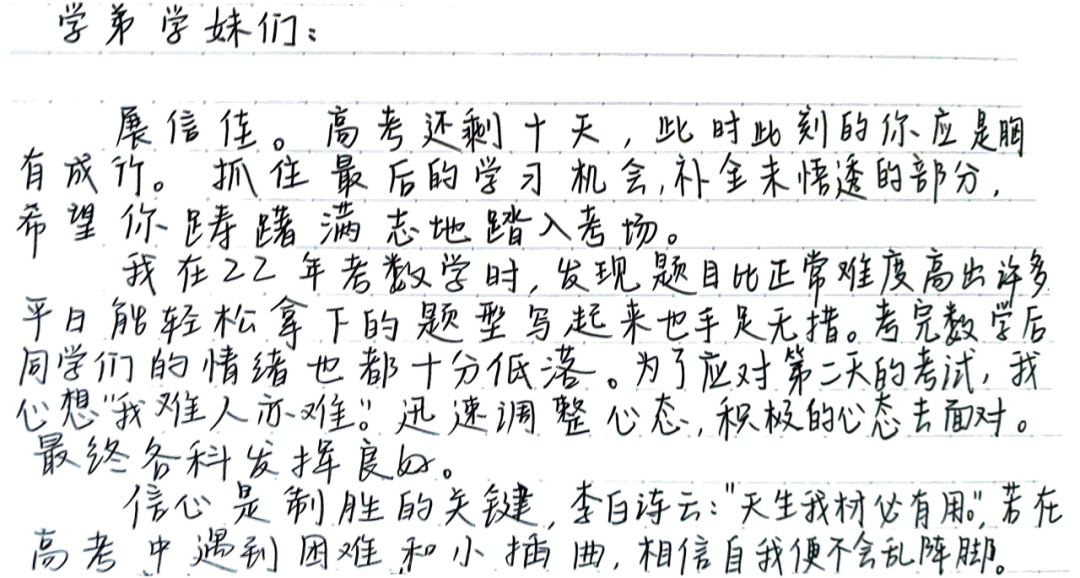 学弟学妹们：
展信佳。高考还剩十天，此时此刻的你应是胸
有成竹。抓住最后的学习机会，补全未悟透的部分，
希望你踌躇满志地踏入考场。
我在22年考数学时，发现题目比正常难度高出许多
平日能轻松拿下的题型写起来也手足无措。考完数学后
同学们的情绪也都十分低落。为了应对第二天的考试，我
心想"我难人亦难"。迅速调整心态，积极的心态去面对。
最终各科发挥良好。
信心是制胜的关键，李白诗云："天生我材必有用"，若在
高考中遇到困难和小插曲，相信自我便不会乱阵脚。